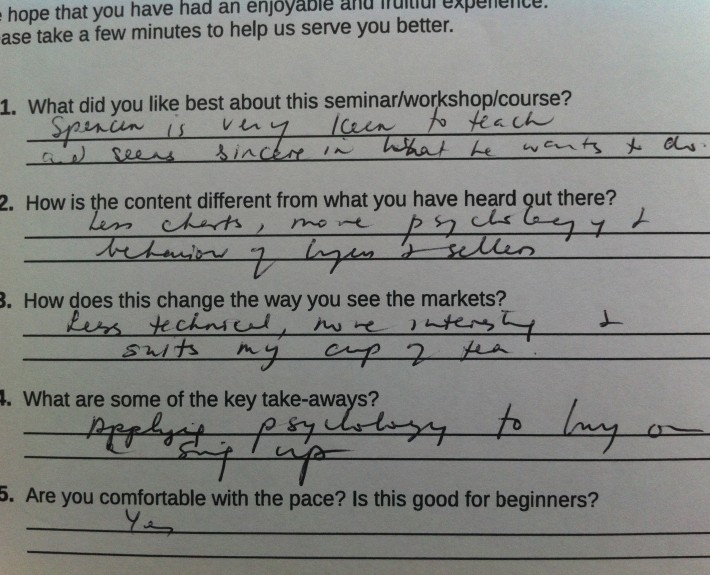 hope that you have had an enjoyable and fruitful experience.
ase take a few minutes to help us serve you better.
1. What did you like best about this seminar/workshop/course?
Spencer is very keen to teach
and seems sincere in what he wants to do.
2. How is the content different from what you have heard out there?
Less charts, more psychology &
behavior of buyers & sellers
3. How does this change the way you see the markets?
Less technical, more interesting &
suits my cup of tea.
4. What are some of the key take-aways?
Applying psychology to buy on
up
5. Are you comfortable with the pace? Is this good for beginners?
Yes